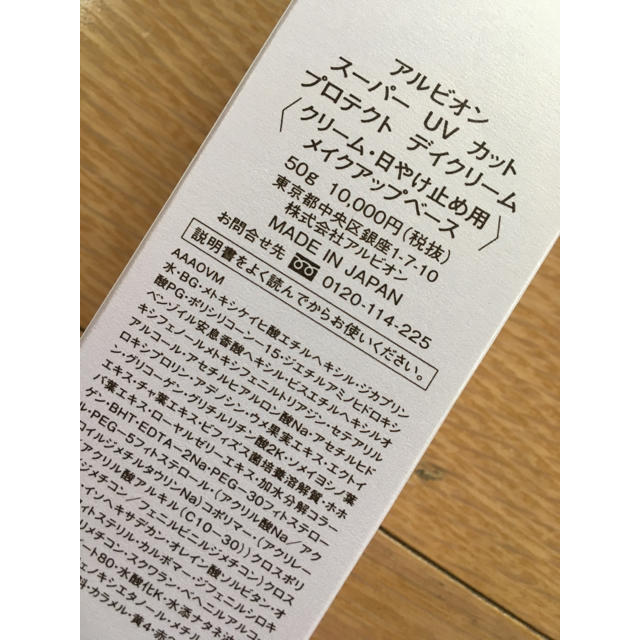 アルビオン
スーパー UV カット
プロテクト デイクリーム
〈クリーム・日やけ止め用
メイクアップベース〉
50g 10,000円(税抜)
東京都中央区銀座1-7-10
株式会社アルビオン
MADE IN JAPAN
お問合せ先 0120-114-225
説明書をよく読んでからお使いください。
AAAOVM
水・BG・メトキシケイヒ酸エチルヘキシル・ジカプリン
酸PG・ポリシリコーン-15・ジエチルアミノヒドロキシ
ベンゾイル安息香酸ヘキシル・ビスエチルヘキシルオ
キシフェノールメトキシフェニルトリアジン・セテアリル
アルコール・アセチルヒアルロン酸Na・アセチルヒド
ロキシプロリン・アケノシン・ウメ果実エキス・エクトイ
ン・グリコーゲン・グリチルリチン酸2K・ソメイヨシノ葉
エキス・チャ葉エキス・ビフィズス菌培養溶解質・ホホ
バ葉エキス・ローヤルゼリーエキス・加水分解コラー
ゲン・BHT・EDTA-2Na・PEG-30フィトステロー
ル・PEG-5フィトステロール・(アクリル酸Na/アク
ロイルジメチルタウリンNa)コポリマー・(アクリレー
アクリル酸アルキル(C10-30))クロスポリ
ジメチコン/フェニルビニルジメチコン)クロス
イソヘキサデカン・オレイン酸ソルビタン・オ
フィトステリル・カルボマー・ジフェニルシロキ
メチコン・スクワラン・ベヘニルアルコ
ート80・水酸化K・水添ナタネ油
ェノキシエタノール・メチル
料・カラメル・黄4・赤